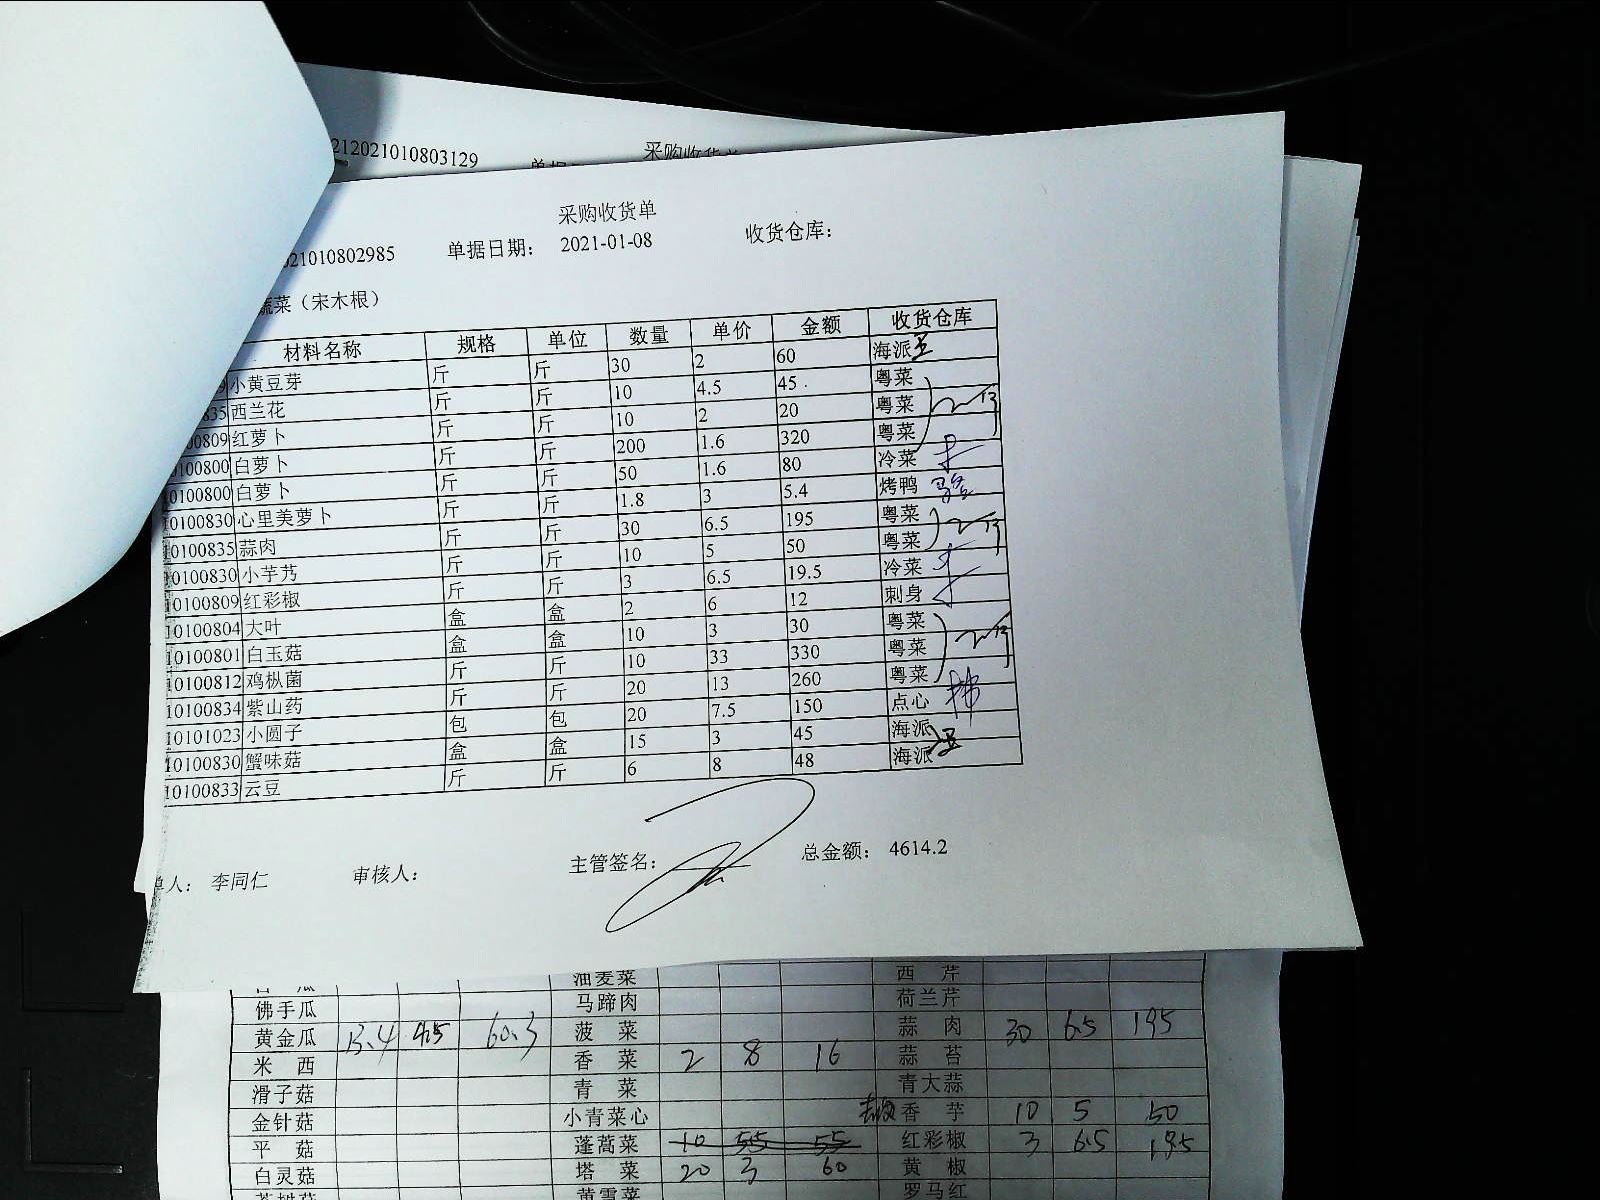 212021010803129
采购收货单
采购收货单
021010802985 单据日期： 2021-01-08 收货仓库：
蔬菜（宋木根）
材料名称 规格 单位 数量 单价 金额 收货仓库
9 小黄豆芽 斤 斤 30 2 60 海派
835 西兰花 斤 斤 10 4.5 45 粤菜
00809 红萝卜 斤 斤 10 2 20 粤菜
0100800 白萝卜 斤 斤 200 1.6 320 粤菜
0100800 白萝卜 斤 斤 50 1.6 80 冷菜
10100830 心里美萝卜 斤 斤 1.8 3 5.4 烤鸭
10100835 蒜肉 斤 斤 30 6.5 195 粤菜
10100830 小芋艿 斤 斤 10 5 50 粤菜
10100809 红彩椒 斤 斤 3 6.5 19.5 冷菜
10100804 大叶 盒 盒 2 6 12 刺身
10100801 白玉菇 盒 盒 10 3 30 粤菜
10100812 鸡枞菌 斤 斤 10 33 330 粤菜
10100834 紫山药 斤 斤 20 13 260 粤菜
10101023 小圆子 包 包 20 7.5 150 点心
10100830 蟹味菇 盒 盒 15 3 45 海派
10100833 云豆 斤 斤 6 8 48 海派
单人： 李同仁 审核人： 主管签名： 总金额： 4614.2
油麦菜 西 芹
佛手瓜 马蹄肉 荷兰芹
黄金瓜 13.4 4.5 60.3 菠 菜 蒜 肉 30 6.5 195
米 西 香 菜 2 8 16 蒜 苔
滑子菇 青 菜 青大蒜
金针菇 小青菜心 香 芋 10 5 50
平 菇 蓬蒿菜 10 5.5 55 红彩椒 3 6.5 19.5
白灵菇 塔 菜 20 3 60 黄 椒
黄雪菜 罗马红